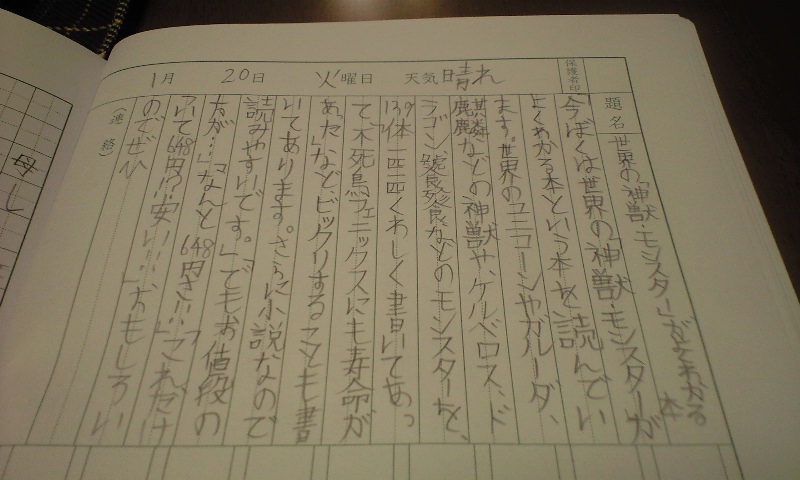 1月 20日 火曜日 天気 晴れ 保護者印
題名 世界の「神獣・モンスター」がよくわかる本
今ぼくは世界の「神獣・モンスターが
よくわかる本という本を読んでい
ます。世界のユニコーンやガルーダ、
麒麟などの神獣や、ケルベロス、ド
ラゴン、饕餮などのモンスターを、
139体一匹一匹くわしく書いてあっ
て、「不死鳥、フェニックスにも寿命が
あった」などビックリすることも書
いてあります。さらに小説なので
読みやすいです。」でもお値段の
方が…「なんと648円さ…」「これだけ
ついて648円!?安い…」おもしろい
のでぜひ
(連絡)
母
し